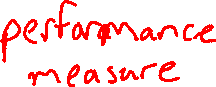 performance
measure